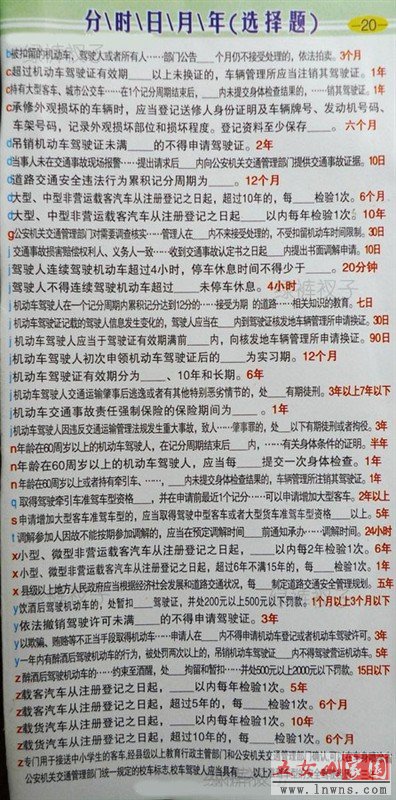 分\时\日\月\年(选择题)
-20-
b被扣留的机动车，驾驶人或者所有人……部门公告____个月仍不接受处理的，依法拍卖。3个月
c超过机动车驾驶证有效期____以上未换证的，车辆管理所应当注销其驾驶证。1年
c持有大型客车、城市公交车……在1个记分周期结束后，____内未提交身体检查结果的，……销其驾驶证。1年
c承修外观损坏的车辆时，应当登记送修人身份证明及车辆牌号、发动机号码、
车架号码，记录外观损坏部位和损坏程度。登记资料至少保存____。六个月
d吊销机动车驾驶证未满____的不得申请驾驶证。2年
d当事人未在交通事故现场报警……提出请求后____内向公安机关交通管理部门提供交通事故证据。10日
d道路交通安全违法行为累积记分周期为____。12个月
d大型、中型非营运载客汽车从注册登记之日起，超过10年的，每____检验1次。6个月
d大型、中型非营运载客汽车从注册登记之日起____以内每年检验1次。10年
g公安机关交通管理部门对需要调查核实……管理人在____内不来接受处理的，不受扣留机动车时间限制。30日
j交通事故损害赔偿权利人、义务人一致……收到交通事故认定书之日起____内提出书面调解申请。10日
j驾驶人连续驾驶机动车超过4小时，停车休息时间不得少于____。20分钟
j驾驶人不得连续驾驶机动车超过____未停车休息。4小时
j机动车驾驶人在一个记分周期内累积记分达到12分的……接受为期____的道路……相关知识的教育。七日
j机动车驾驶证记载的驾驶人信息发生变化的，驾驶人应当在____内到驾驶证核发地车辆管理所申请换证。30日
j机动车驾驶人应当于驾驶证有效期满前____内，向核发地车辆管理所申请换证。90日
j机动车驾驶人初次申领机动车驾驶证后的____为实习期。12个月
j机动车驾驶证有效期分为____、10年和长期。6年
j机动车驾驶人交通运输肇事后逃逸或者有其他特别恶劣情节的，处____有期徒刑。3年以上7年以下
j机动车交通事故责任强制保险的保险期间为____。1年
j机动车驾驶人因违反交通运输管理法规发生重大事故，致人……肇事罪的，处____以下有期徒刑或者拘役。3年
n年龄在60周岁以上的机动车驾驶人，在记分周期结束后____内，……有关身体条件的证明。半年
n年龄在60周岁以上的机动车驾驶人，应当每____提交一次身体检查。1年
n年龄在60周岁以上或者持有牵引车、……，____内未提交身体检查结果的，车辆管理所注销其驾驶证。1年
q取得驾驶牵引车准驾车型资格____，并在申请前最近1个记分……可以申请增加大型客车。2年以上
s申请增加大型客车准驾车型的，应当取得驾驶中型客车或者大型货车准驾车型资格____以上。5年
t调解参加人因故不能按期参加调解的，应当在预定调解时间____前通知承办……调解时间。24小时
x小型、微型非营运载客汽车从注册登记之日起，____以内每2年检验1次。6年
x小型、微型非营运载客汽车从注册登记之日起，超过6年不满15年的，每____检验1次。1年
x县级以上地方人民政府应当根据经济社会发展和道路交通状况，每____制定道路交通安全管理规划。五年
y饮酒后驾驶机动车的，处暂扣____驾驶证，并处200元以上500元以下罚款。1个月以上3个月以下
y依法撤销驾驶许可未满____的不得申请驾驶证。3年
y以欺骗、贿赂等不正当手段取得机动车……申请人在____内不得申请机动车登记或者机动车驾驶许可。3年
y一年内有醉酒后驾驶机动车的行为，被处罚两次以上的，吊销机动车驾驶证____内不得驾驶营运机动车。5年
z醉酒后驾驶机动车的……约束至酒醒，处____拘留和暂扣……并处500元以上2000元以下罚款。15日以下
z载客汽车从注册登记之日起，____以内每年检验1次。5年
z载客汽车从注册登记之日起，超过5年的，每____检验1次。6个月
z载货汽车从注册登记之日起，____以内每年检验1次。10年
z载货汽车从注册登记之日起，超过10年的，每____检验1次。6个月
z专门用于接送中小学生的客车，经县级以上教育行政主管部门和公安机关交通管理部门确认
公安机关交通管理部门统一规定的校车标志，校车驾驶人应当具有____以上
www.lnwns.com